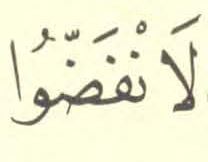 لَانْفَضُّوا